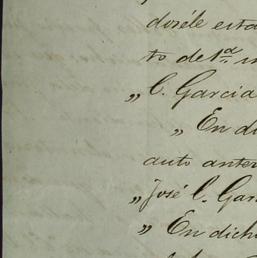 doséle esta
to de ta. in
„ C. Garcia
„ En di
auto anter
„ José C. Gar
„ En dicho